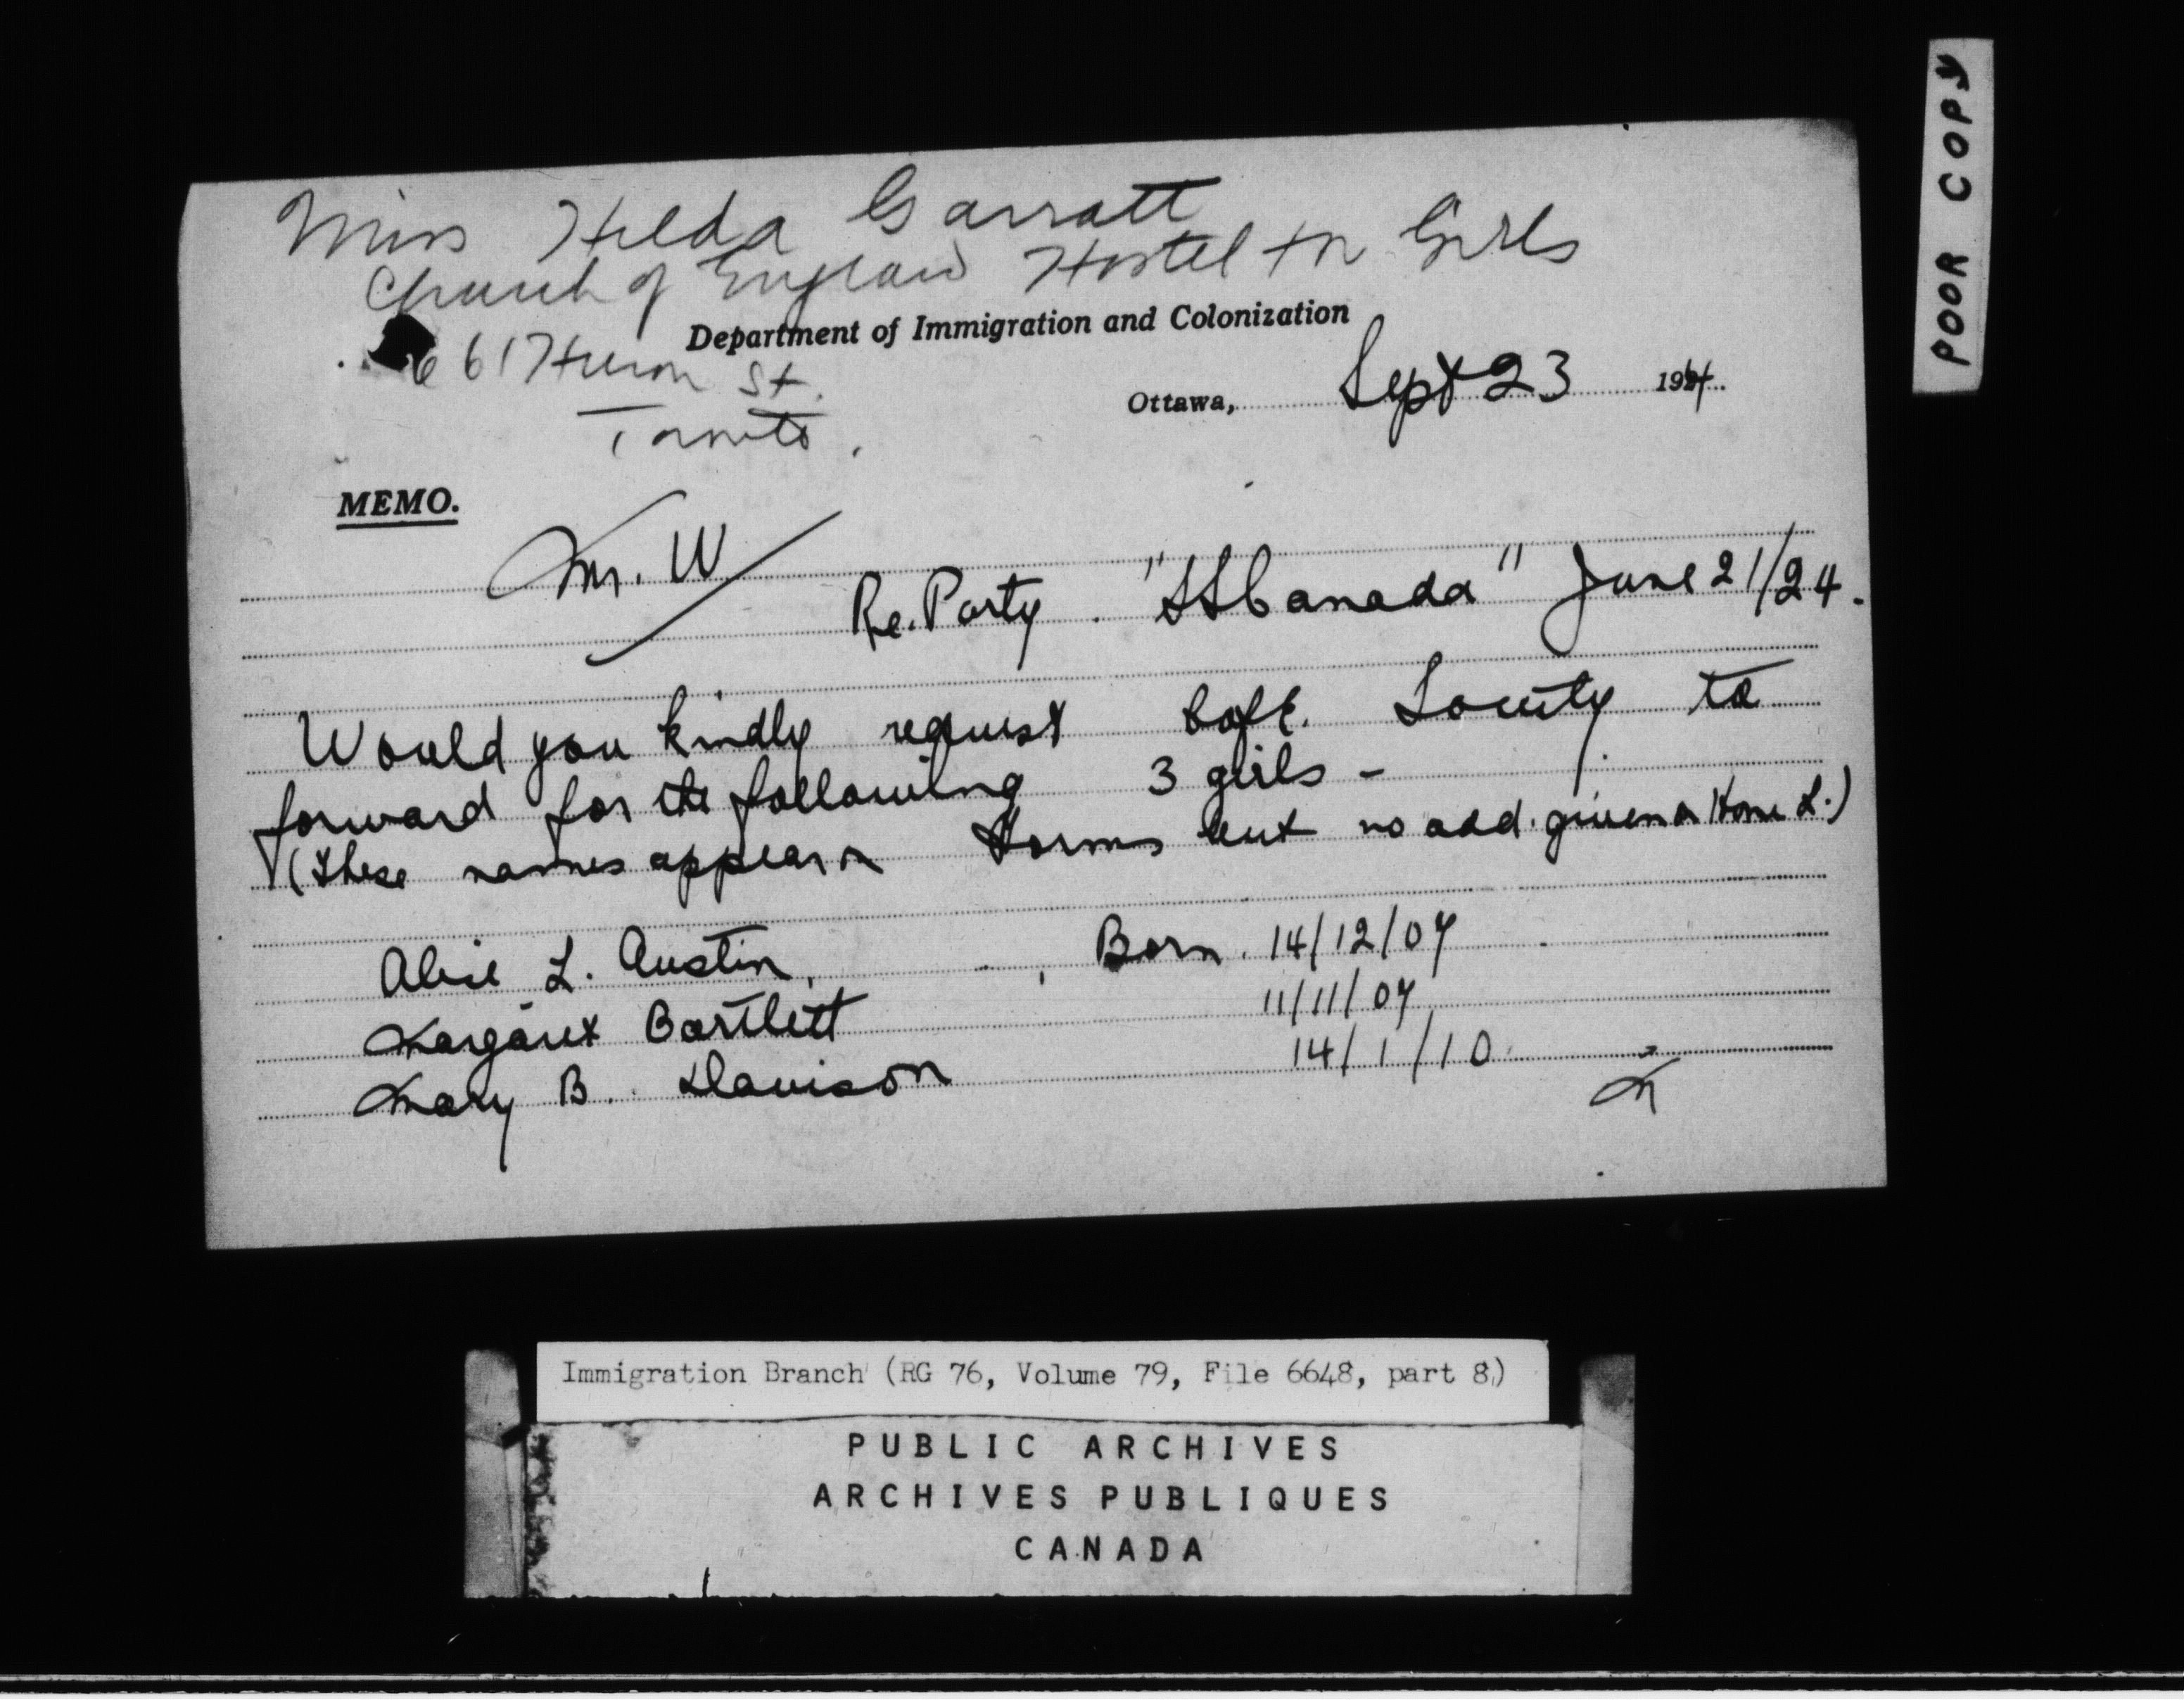 POOR COPY
Miss Hilda Garratt
Church of England Hostel for Girls
661 Huron St.
Toronto.
Department of Immigration and Colonization
Ottawa, Sept 23 1924.
MEMO.
Mr. W
Re. Party. "SS Canada" June 21/24.
Would you kindly request Society to
forward for the following 3 girls -
(these names appear on Forms but no add. given on Home L.)
Alice L. Austin, Born. 14/12/07
Margaret Bartlett 11/11/07
Mary B. Davison 14/1/10
Immigration Branch (RG 76, Volume 79, File 6648, part 8)
PUBLIC ARCHIVES
ARCHIVES PUBLIQUES
CANADA